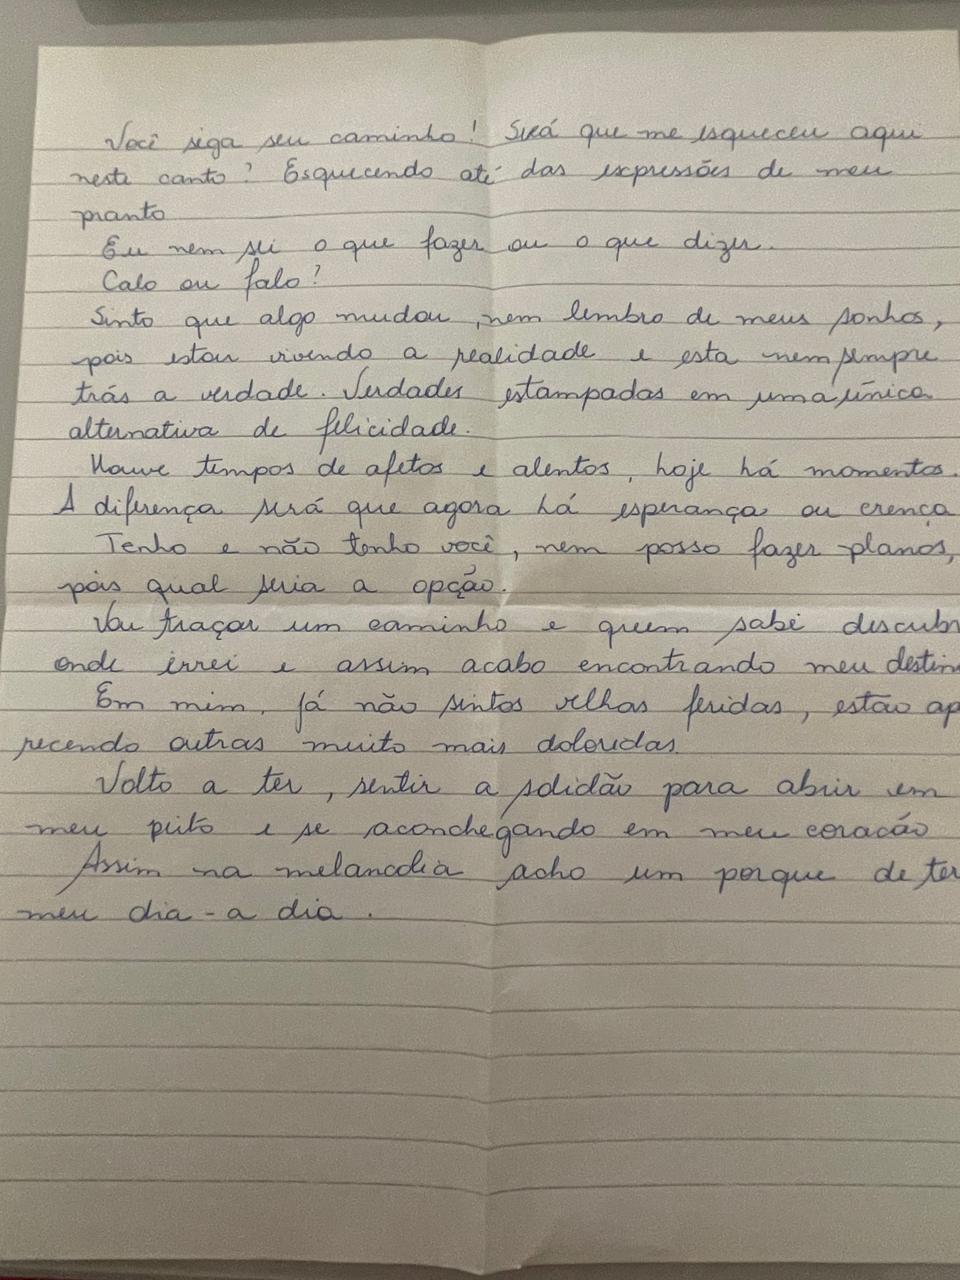 Você siga seu caminho! Será que me esqueceu aqui
neste canto? Esquecendo até das expressões de meu
pranto
Eu nem sei o que fazer ou o que dizer.
Calo ou falo?
Sinto que algo mudou, nem lembro de meus sonhos,
pois estou vivendo a realidade e esta nem sempre
trás a verdade. Verdades estampadas em uma única
alternativa de felicidade.
Houve tempos de afetos e alentos, hoje há momentos.
A diferença será que agora há esperança ou crença
Tenho e não tenho você, nem posso fazer planos,
pois qual seria a opção.
Vou traçar um caminho e quem sabe descubr
onde errei e assim acabo encontrando meu destin
Em mim, já não sintos velhas feridas, estão ap
recendo outras muito mais doloridas.
Volto a ter, sentir a solidão para abrir em
meu peito e se aconchegando em meu coracão
Assim na melancolia acho um porque de ter
meu dia-a dia.